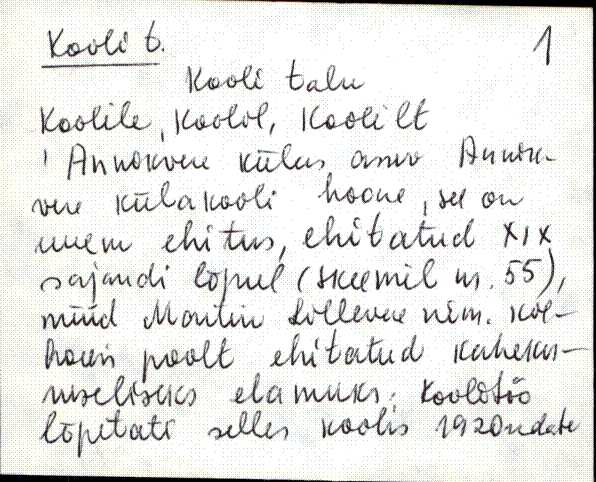 Kooli t. 1
Kooli talu
Koolile, Koolil, Koolilt
' Annikvere külas asuv Annik-
vere külakooli hoone, see on
uuem ehitus, ehitatud XIX
sajandi lõpul (skeemil nr. 55),
nüüd Martin Lillevere nim. kol-
hoosi poolt ehitatud kaheka-
ruseliseks elamuks. Koolitöö
lõpetati selles koolis 1920ndate